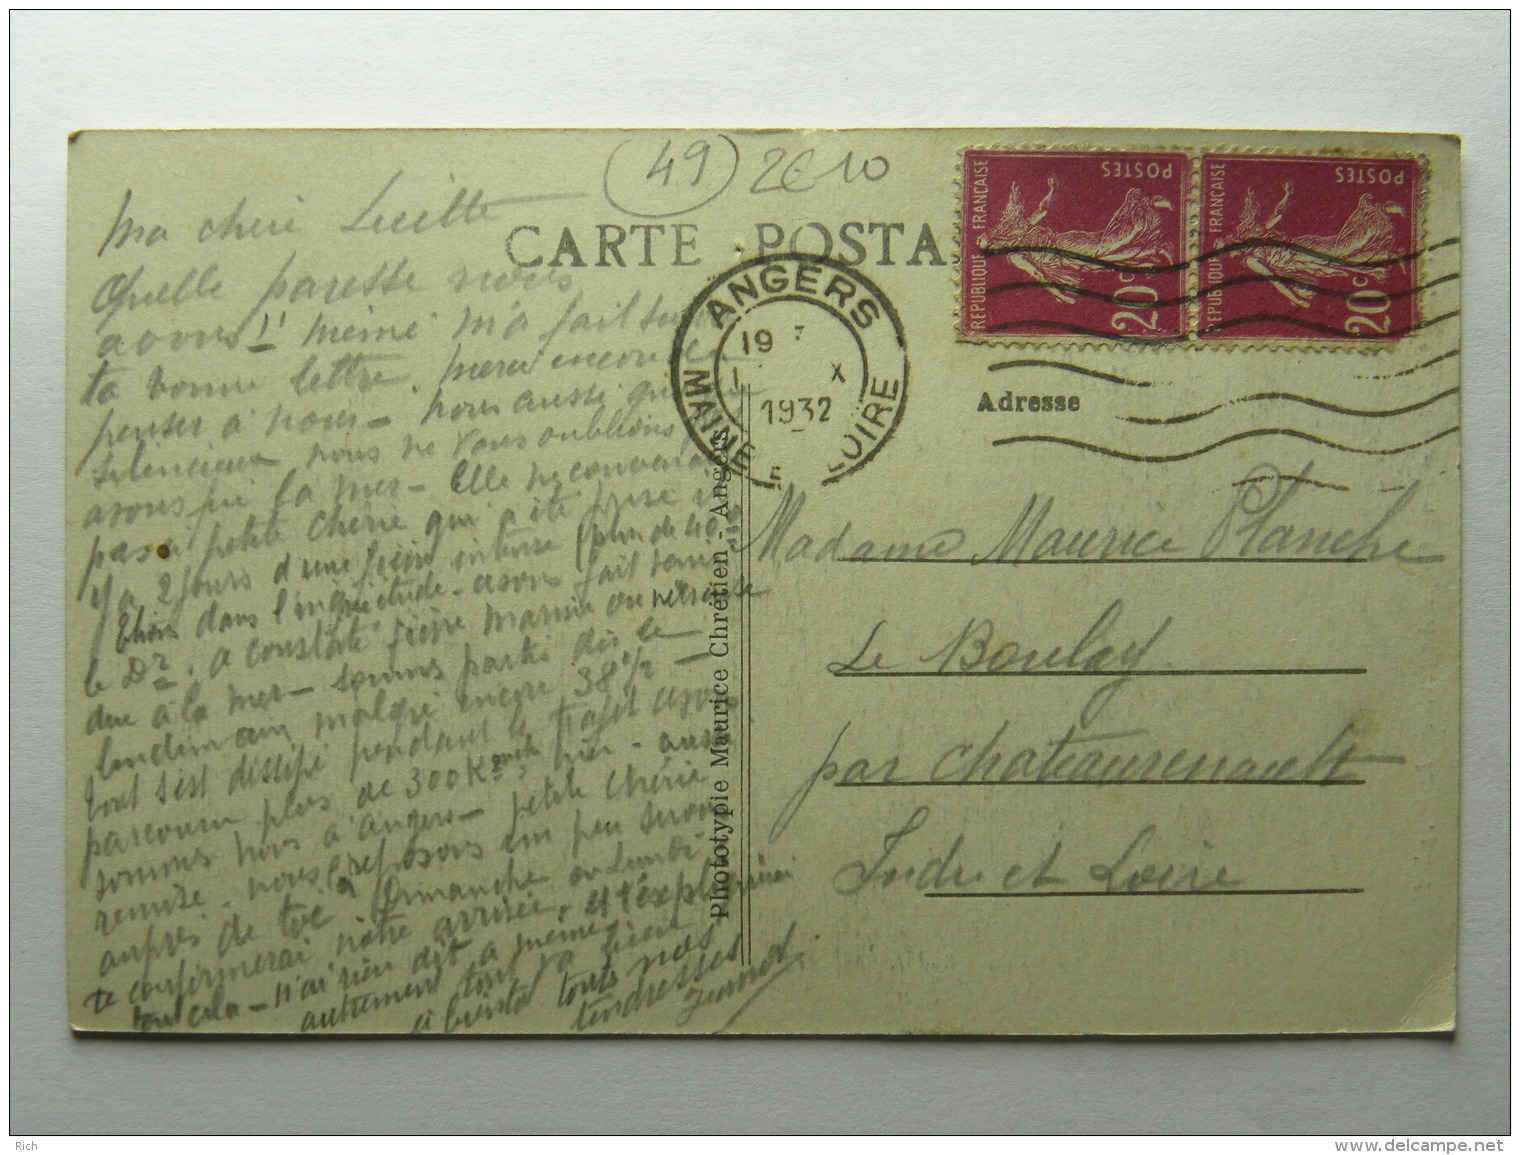 (49) 2€10
CARTE POSTA
REPUBLIQUE FRANÇAISE
POSTES
20c
REPUBLIQUE FRANÇAISE
POSTES
20c
ANGERS
19
1 X
1932
MAINE E LOIRE
Adresse
Ma cheri Lucette
Quelle paresse nous
avons !! mémé m'a fait
ta bonne lettre. merci encore de
penser à nous — nous aussi
silencieux nous ne vous oublions
avons fui la mer — Elle ne convenait
pas a petite cherie qui a été prise il
y a 2 jours d'une fièvre intense (plus de 40°
Etions dans l'inquiétude — avons fait venir
le Dr. a constaté fièvre marine ou nerveuse
due à la mer — sommes parti dès le
lendemain malgré encore 38 1/2 —
tout s'est dissipé pendant le trajet avons
parcouru plus de 300 K hier — aussi
sommes nous à Angers — petite chérie
remise — nous reposons un peu serons
auprès de toi Dimanche ou Lundi
te confirmerai notre arrivée. et t'expliquerai
tout cela — n'ai rien dit a mémé
autrement tout va bien
a bientot touts nos
tendresses
Phototypie Maurice Chrétien - Angers
Madame Maurice Planche
Le Boulay
par Chateaurenault
Indre et Loire
Rich
www.delcampe.net